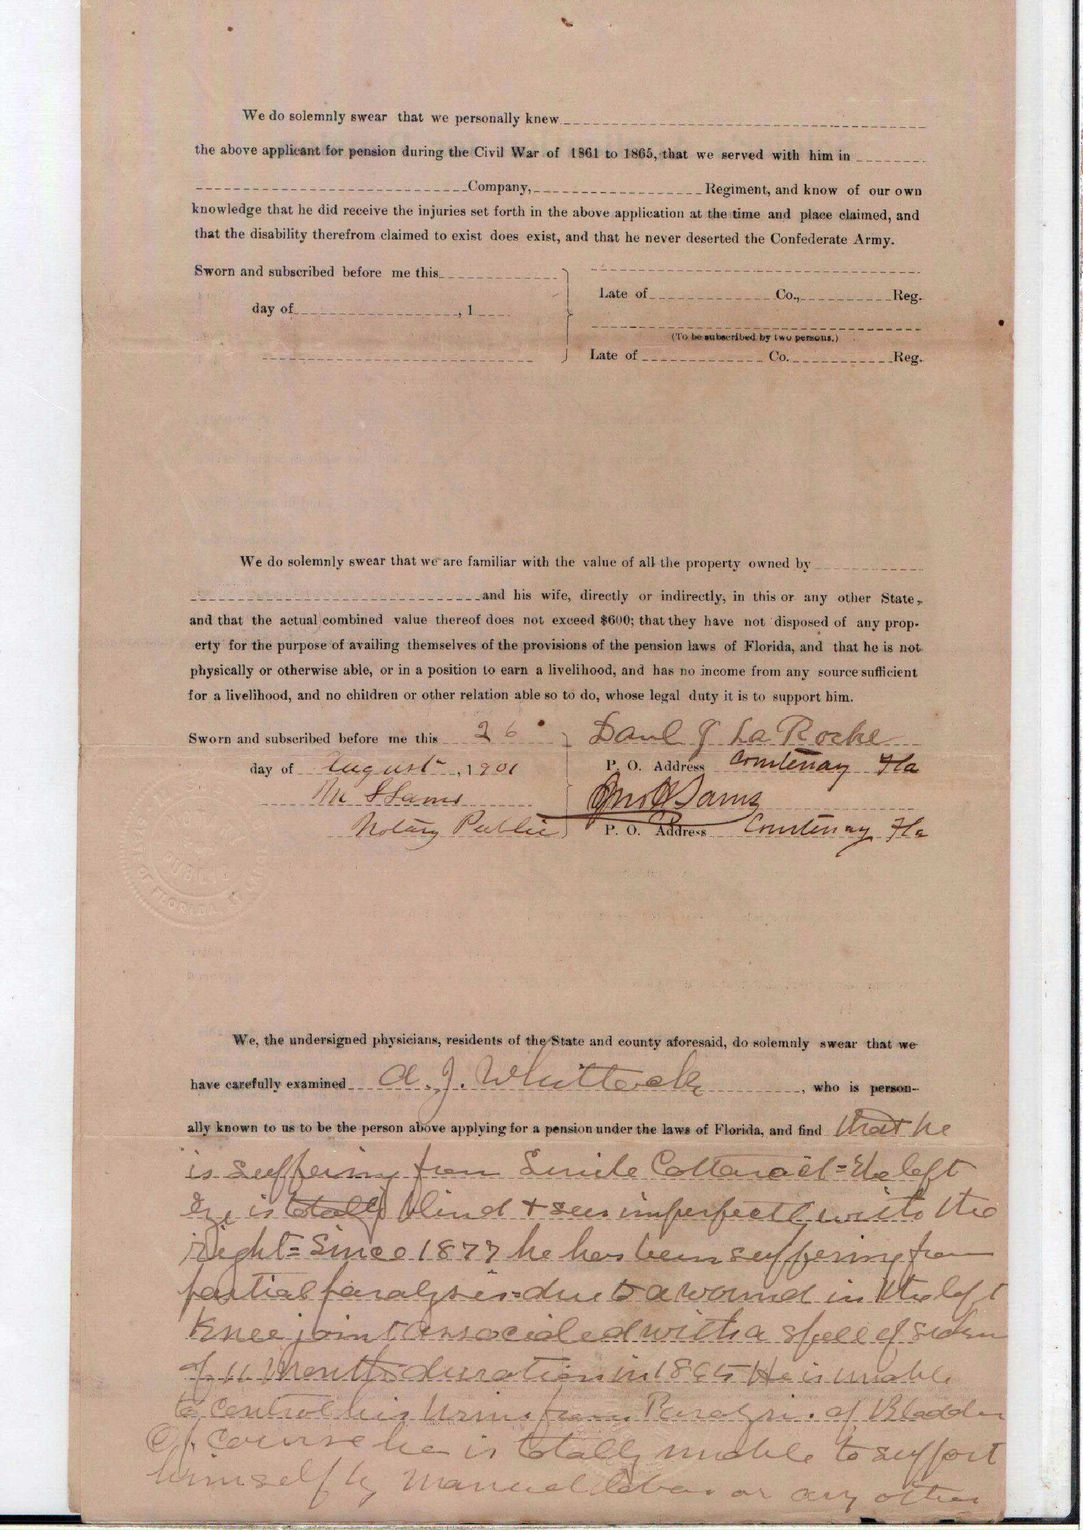 We do solemnly swear that we personally knew
the above applicant for pension during the Civil War of 1861 to 1865, that we served with him in
Company, Regiment, and know of our own
knowledge that he did receive the injuries set forth in the above application at the time and place claimed, and
that the disability therefrom claimed to exist does exist, and that he never deserted the Confederate Army.
Sworn and subscribed before me this
Late of Co., Reg.
day of , 1
(To be subscribed by two persons.)
Late of Co. Reg.
We do solemnly swear that we are familiar with the value of all the property owned by
and his wife, directly or indirectly, in this or any other State,
and that the actual combined value thereof does not exceed $600; that they have not disposed of any prop-
erty for the purpose of availing themselves of the provisions of the pension laws of Florida, and that he is not
physically or otherwise able, or in a position to earn a livelihood, and has no income from any source sufficient
for a livelihood, and no children or other relation able so to do, whose legal duty it is to support him.
Sworn and subscribed before me this 26 La Roche
day of August, 1901 P. O. Address Courtenay Fla
Sams Sams
Notary Public P. O. Address Courtenay Fla
PUBLIC
OF FLORIDA
We, the undersigned physicians, residents of the State and county aforesaid, do solemnly swear that we
have carefully examined A. J. , who is person-
ally known to us to be the person above applying for a pension under the laws of Florida, and find that he
is suffering from Senile Cottaract = the left
Eye is totally blind & sees imperfectly with the
right = Since 1877 he has been suffering from
partial paralysis = due to a wound in the left
Knee joint associated with a spell of
of 11 Months duration in 1865 He is unable
to control his Urine from of Bladder
Of course he is totally unable to support
himself by Manual labor or any other